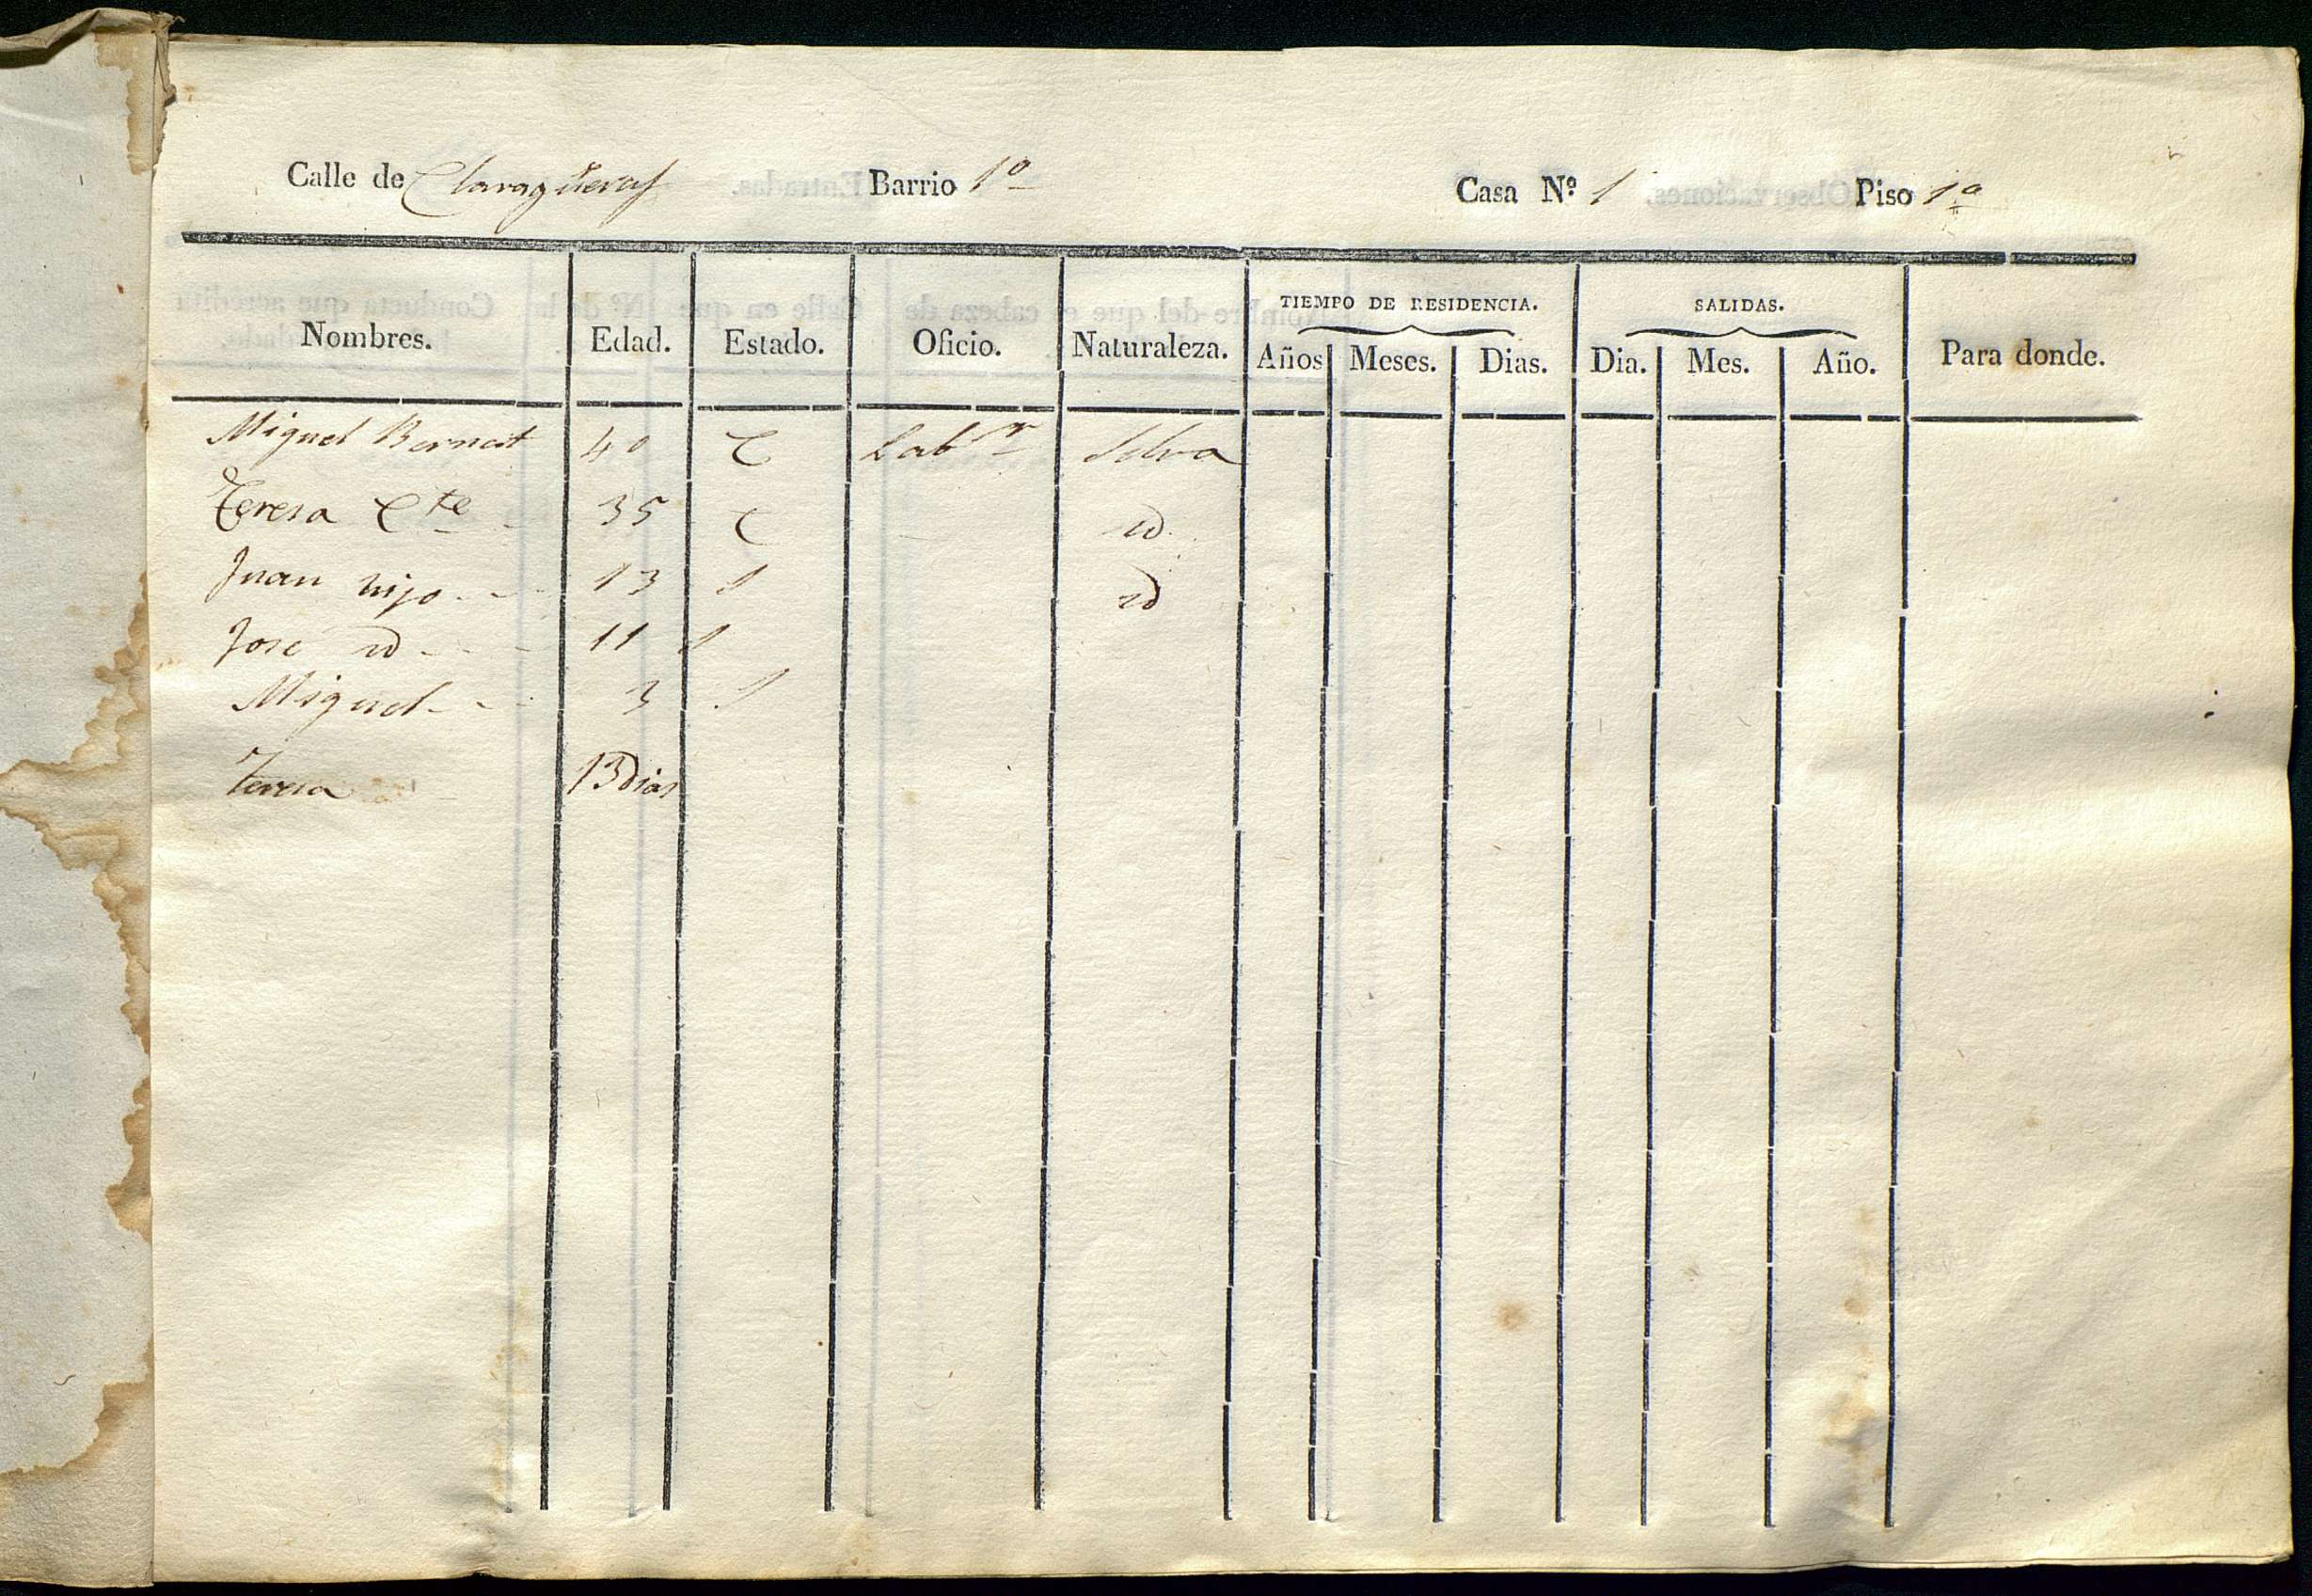 Calle de Claragüeras Barrio 1º Casa Nº 1 Piso 1º
TIEMPO DE RESIDENCIA. SALIDAS.
Nombres. Edad. Estado. Oficio. Naturaleza. Años Meses. Dias. Dia. Mes. Año. Para donde.
Miguel Bernat 40 C Lab.or Selva
Teresa C.te 35 C id.
Juan hijo 13 S id
Jose id 11 S
Miguel 3 S
Teresa 13 dias